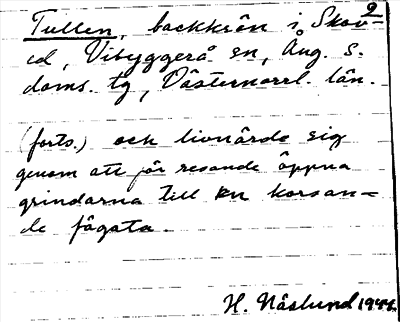 2
Tullen, backkrön i Skov-
ed, Vibyggerå sn, Ång. s.
doms. tg, Västernorrl. län.
(forts.) och livnärde sig
genom att för resande öppna
grindarna till en korsan=
de fägata.
H. Näslund 1944.